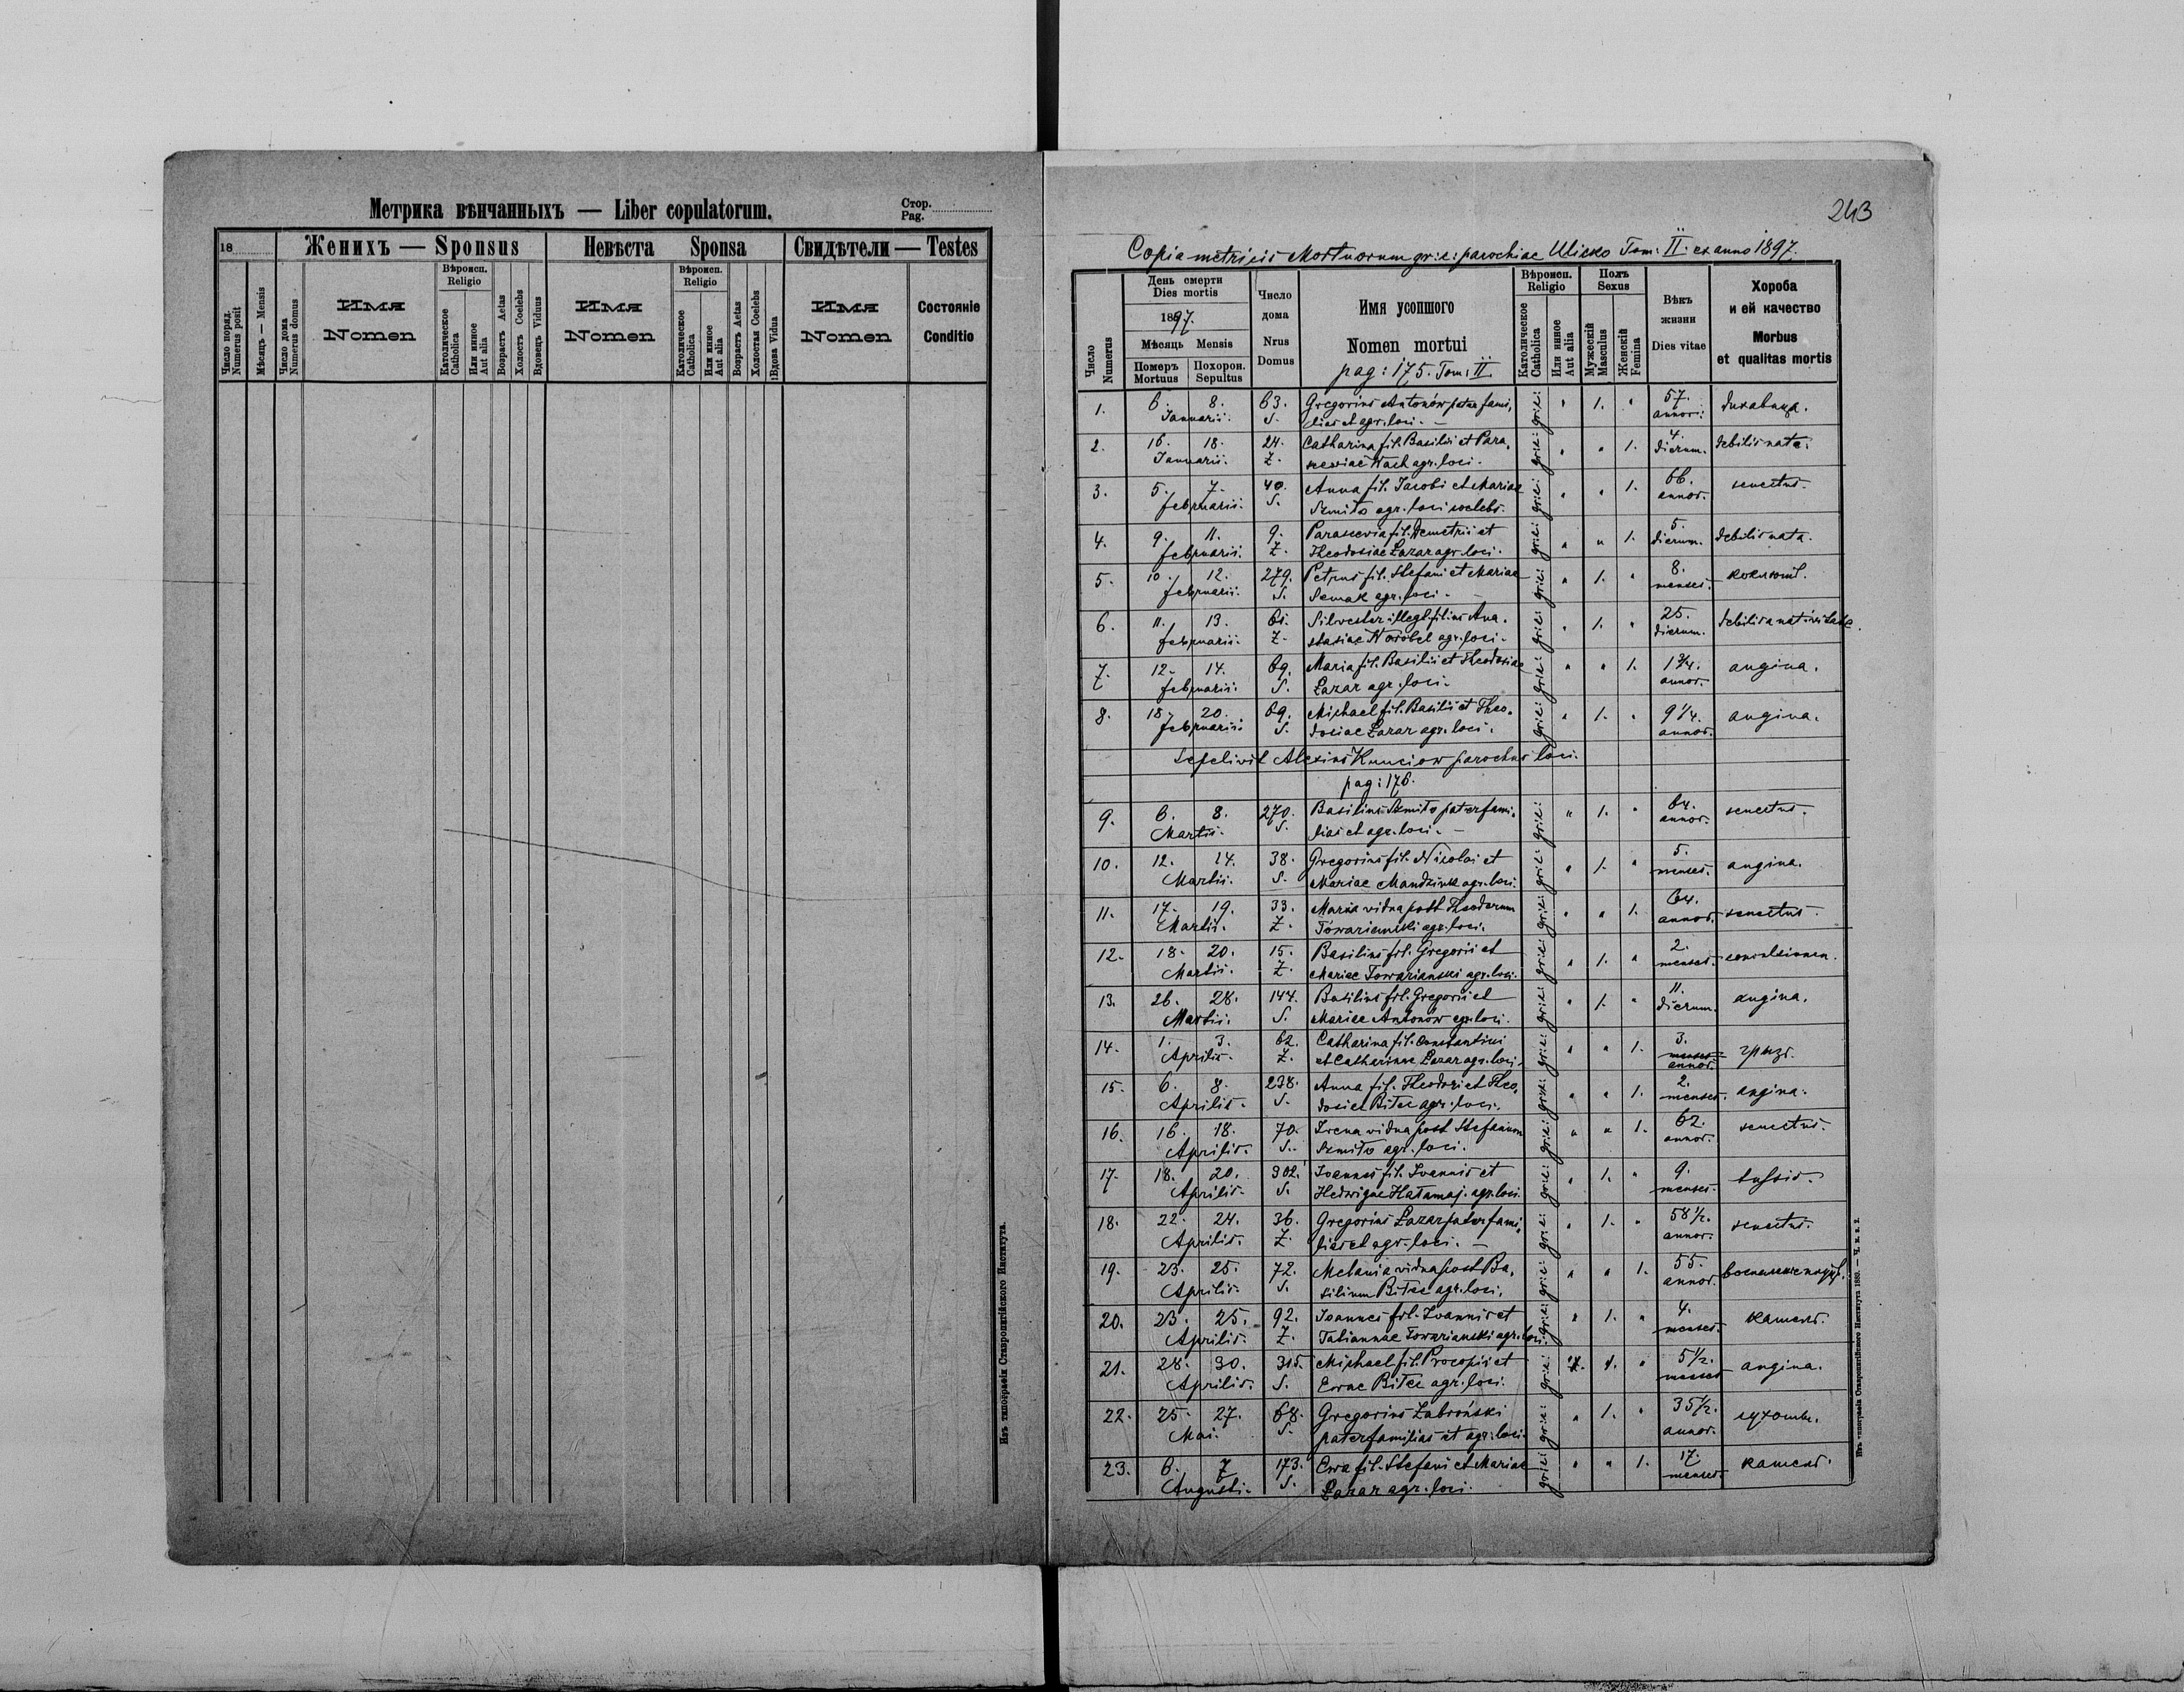 Метрика вѣнчанныхъ — Liber copulatorum.
Стор.
Pag.
18
Женихъ — Sponsus
Невѣста Sponsa
Свидѣтели — Testes
Число поряд.
Numerus posit
Мѣсяць — Mensis
Число дома
Numerus domus
Имя
Nomen
Вѣроисп.
Religio
Католическое
Catholica
Или инное
Aut alia
Возрасть Aetas
Холость Coelebs
Вдовець Viduus
Имя
Nomen
Вѣроисп.
Religio
Католическое
Catholica
Или инное
Aut alia
Возрасть Aetas
Холостая Coelebs
Вдова Vidua
Имя
Nomen
Состояніе
Conditio
Изъ типографіи Ставропигійского Института.
243
Copia metricis Mortuorum gr: c: parochiae Ulicko Tom: II. ex anno 1897.
Число
Numerus
День смерти
Dies mortis
1897.
Мѣсяць Mensis
Померъ
Mortuus
Похорон.
Sepultus
Число
дома
Nrus
Domus
Имя усопшого
Nomen mortui
pag: 175. Tom: II.
Вѣроисп.
Religio
Католическое
Catholica
Или инное
Aut alia
Полъ
Sexus
Мужескій
Masculus
Женскій
Femina
Вѣкъ
жизни
Dies vitae
Хороба
и ей качество
Morbus
et qualitas mortis
1. 6. 8. 63. Gregorius Antonów pater fami, gr: c: " 1. " 57.
Januarii. S. lias et agr. loci. — annor: духавица.
2. 16. 18. 24. Catharina fil. Basilii et Para, gr: c: " " 1. 4.
Januarii. Z. sceviae Wach agr. loci. dierum. debilis nata.
3. 5. 7. 40. Anna fil. Jacobi et Mariae gr: c: " " 1. 66.
februarii. S. Szmiło agr. loci coelebs. annor. senectus.
4. 9. 11. 9. Parascevia fil. Demetrii et gr: c: " " 1. 5.
februarii. Z. Theodosiae Łazar agr. loci. dierum. debilis nata.
5. 10. 12. 279. Petrus fil. Stefani et Mariae gr: c: " 1. " 8.
februarii. S. Semak agr. loci. — menses. коклюшъ.
6. 11. 13. 61. Silvester illegt. filius Ana, gr: c: " 1. " 25.
februarii. Z. stasiae Worobel agr. loci. dierum. debilis a nativitate.
7. 12. 14. 69. Maria fil. Basilii et Theodosiae gr: c: " " 1. 1 3/4.
februarii. S. Łazar agr. loci. annor. angina.
8. 18. 20. 69. Michael fil. Basilii et Theo, gr: c: " 1. " 9 1/4.
februarii. S. dosiae Łazar agr. loci. annor. angina.
Sepelivit Alexius Kunciow parochus loci.
pag: 176.
9. 6. 8. 270. Basilius Szmiło paterfami, gr: c: " 1. " 64.
Martii. S. lias et agr. loci. — annor. senectus.
10. 12. 14. 38. Gregorius fil. Nicolai et gr: c: " 1. " 5.
Martii. S. Mariae Mandziuk agr. loci. menses. angina.
11. 17. 19. 33. Maria vidua post Theodorum gr: c: " " 1. 64.
Martii. Z. Towarianski agr. loci. annor. senectus.
12. 18. 20. 15. Basilius fil. Gregorii et gr: c: " 1. " 2.
Martii. Z. Mariae Towarianski agr. loci. menses.
13. 26. 28. 144. Basilius fil. Gregorii et gr: c: " 1. " 11.
Martii. S. Mariae Antonów agr. loci. dierum. angina.
14. 1. 3. 62. Catharina fil. Constantini gr: c: " " 1. 3.
Aprilis. Z. et Catharinae Łazar agr. loci. menses annor. грызь.
15. 6. 8. 238. Anna fil. Theodori et Theo, gr: c: " " 1. 2.
Aprilis. S. dosiae Bitec agr. loci. menses. angina.
16. 16. 18. 70. Irena vidua post Stefanum gr: c: " " 1. 62.
Aprilis. S. Szmiło agr. loci. annor. senectus.
17. 18. 20. 302. Joannes fil. Joannis et gr: c: " 1. " 9.
Aprilis. S. Hedvigae Hałamaj. agr. loci. menses. tussis.
18. 22. 24. 36. Gregorius Łazar paterfami, gr: c: " 1. " 58 1/2.
Aprilis. Z. lias et agr. loci. — annor. senectus.
19. 23. 25. 72. Melania vidua post Ba, gr: c: " " 1. 55.
Aprilis. S. silium Bitec agr. loci. annor.
20. 23. 25. 92. Joannes fil. Joannis et gr: c: " 1. " 4.
Aprilis. Z. Tatiannae Towarianski agr. loci. menses. кашель.
21. 28. 30. 315. Michael fil. Procopii et gr: c: 1. " 5 1/2.
Aprilis. S. Evae Bitec agr. loci. menses angina.
22. 25. 27. 68. Gregorius Zabroński gr: c: " 1. " 35 1/2.
Mai. S. paterfamilias et agr. loci. annor. сухоты.
23. 6. 7 173. Eva fil. Stefani et Mariae gr: c: " " 1. 17.
Augusti. S. Łazar agr. loci. menses. кашель.
Изъ типографіи Ставропигійского Института 1889. — Ч. п. к. 2.